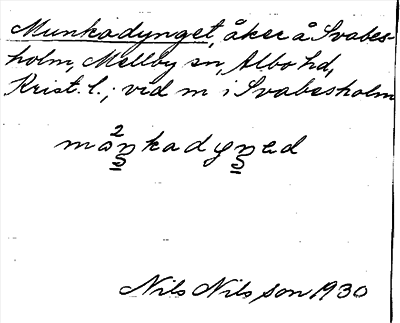 Munkadynget, åker å Svabes-
holm, Mellby sn, Albo hd,
Krist. l.; vid m i Svabesholm
Nils Nilsson 1930